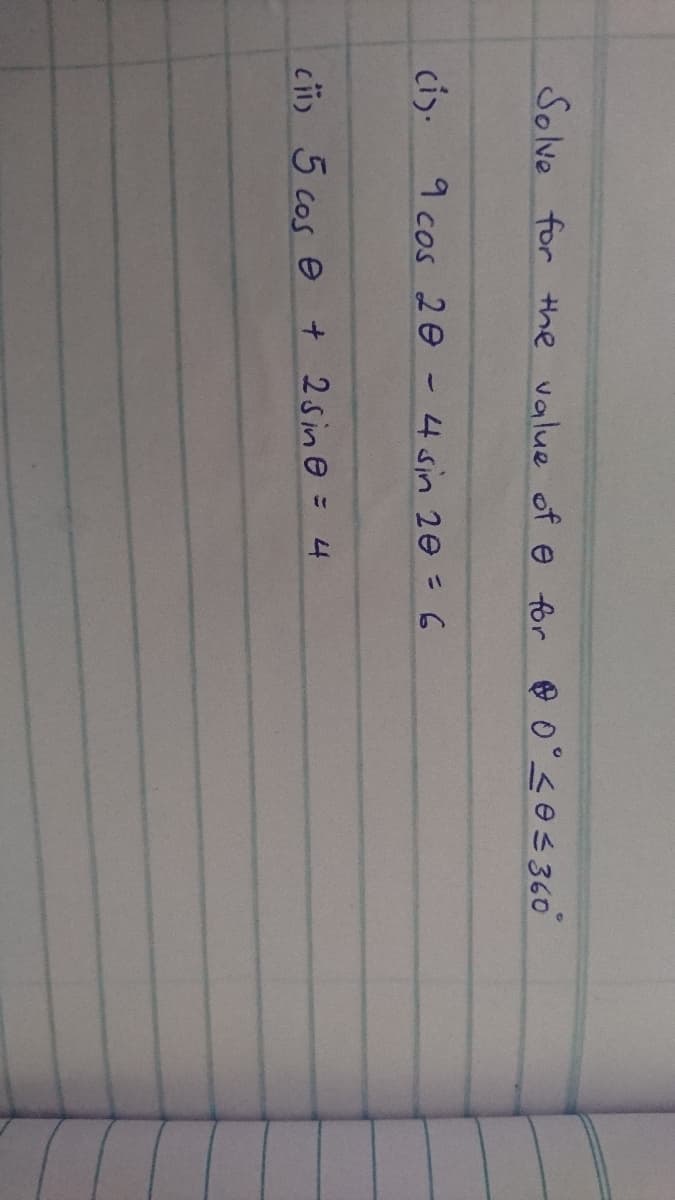 Solve for the value of θ for 0° ≤ θ ≤ 360°
(i). 9 cos 2θ - 4 sin 2θ = 6
(ii) 5 cos θ + 2 sin θ = 4